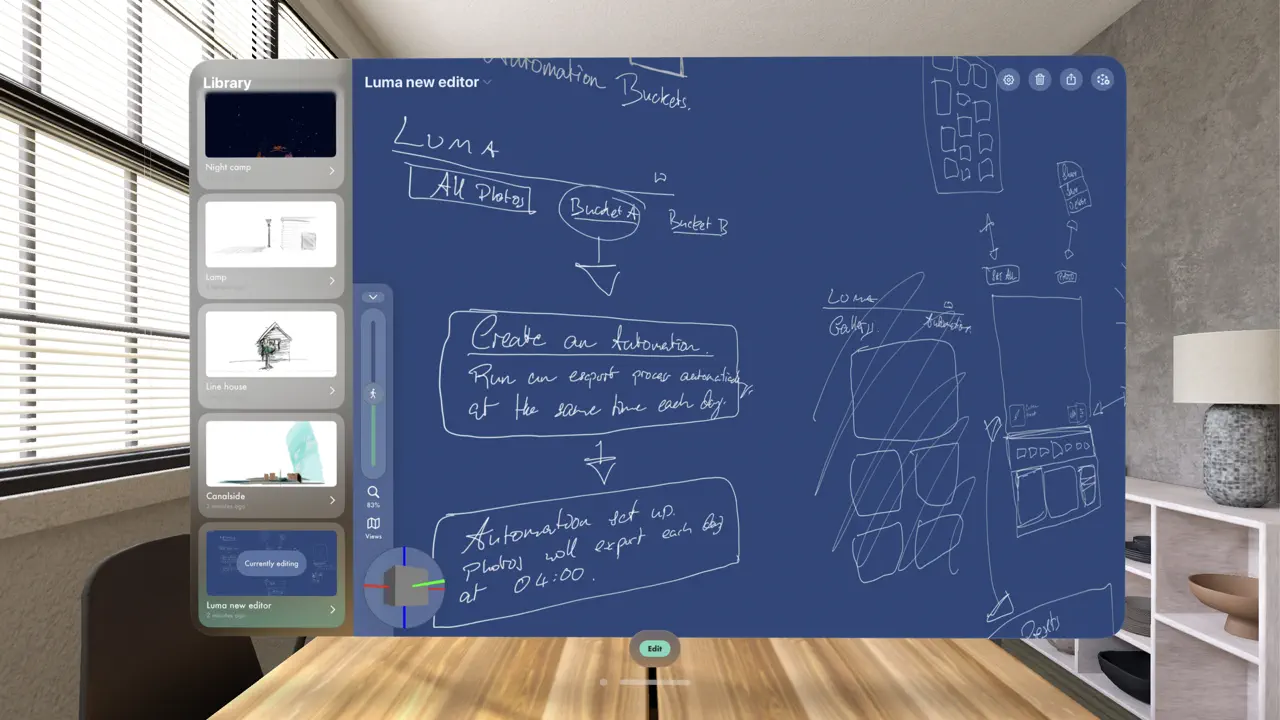 Library
Night camp
Lamp
Line house
Canalside
2 minutes ago
Currently editing
Luma new editor
2 minutes ago
Luma new editor
83%
Views
Edit
Automation
Buckets.
LUMA
All Photos
Bucket A
Bucket B
Create an Automation.
Run an export process automatically
at the same time each day.
Automation set up.
Photos will export each day
at 04:00.
LUMA
Gallery.
Automation
Share
Save
Delete
Presets